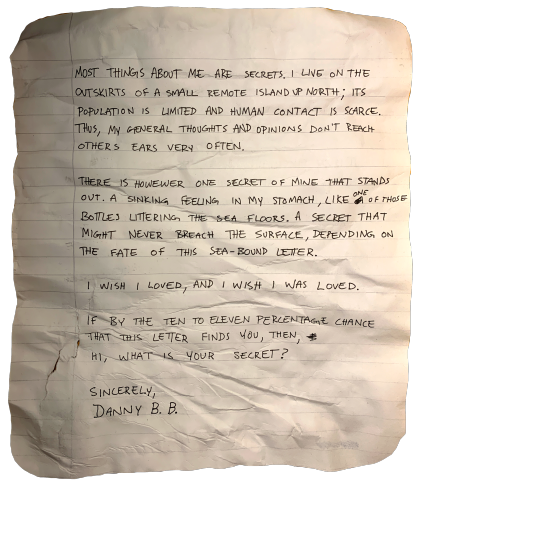 MOST THINGS ABOUT ME ARE SECRETS. I LIVE ON THE
OUTSKIRTS OF A SMALL REMOTE ISLAND UP NORTH; ITS
POPULATION IS LIMITED AND HUMAN CONTACT IS SCARCE.
THUS, MY GENERAL THOUGHTS AND OPINIONS DON'T REACH
OTHERS EARS VERY OFTEN.
THERE IS HOWEWER ONE SECRET OF MINE THAT STANDS
OUT. A SINKING FEELING IN MY STOMACH, LIKE ONE OF THOSE
BOTTLES LITTERING THE SEA FLOORS. A SECRET THAT
MIGHT NEVER BREACH THE SURFACE, DEPENDING ON
THE FATE OF THIS SEA-BOUND LETTER.
I WISH I LOVED, AND I WISH I WAS LOVED.
IF BY THE TEN TO ELEVEN PERCENTAGE CHANCE
THAT THIS LETTER FINDS YOU, THEN,
HI, WHAT IS YOUR SECRET?
SINCERELY,
DANNY B. B.